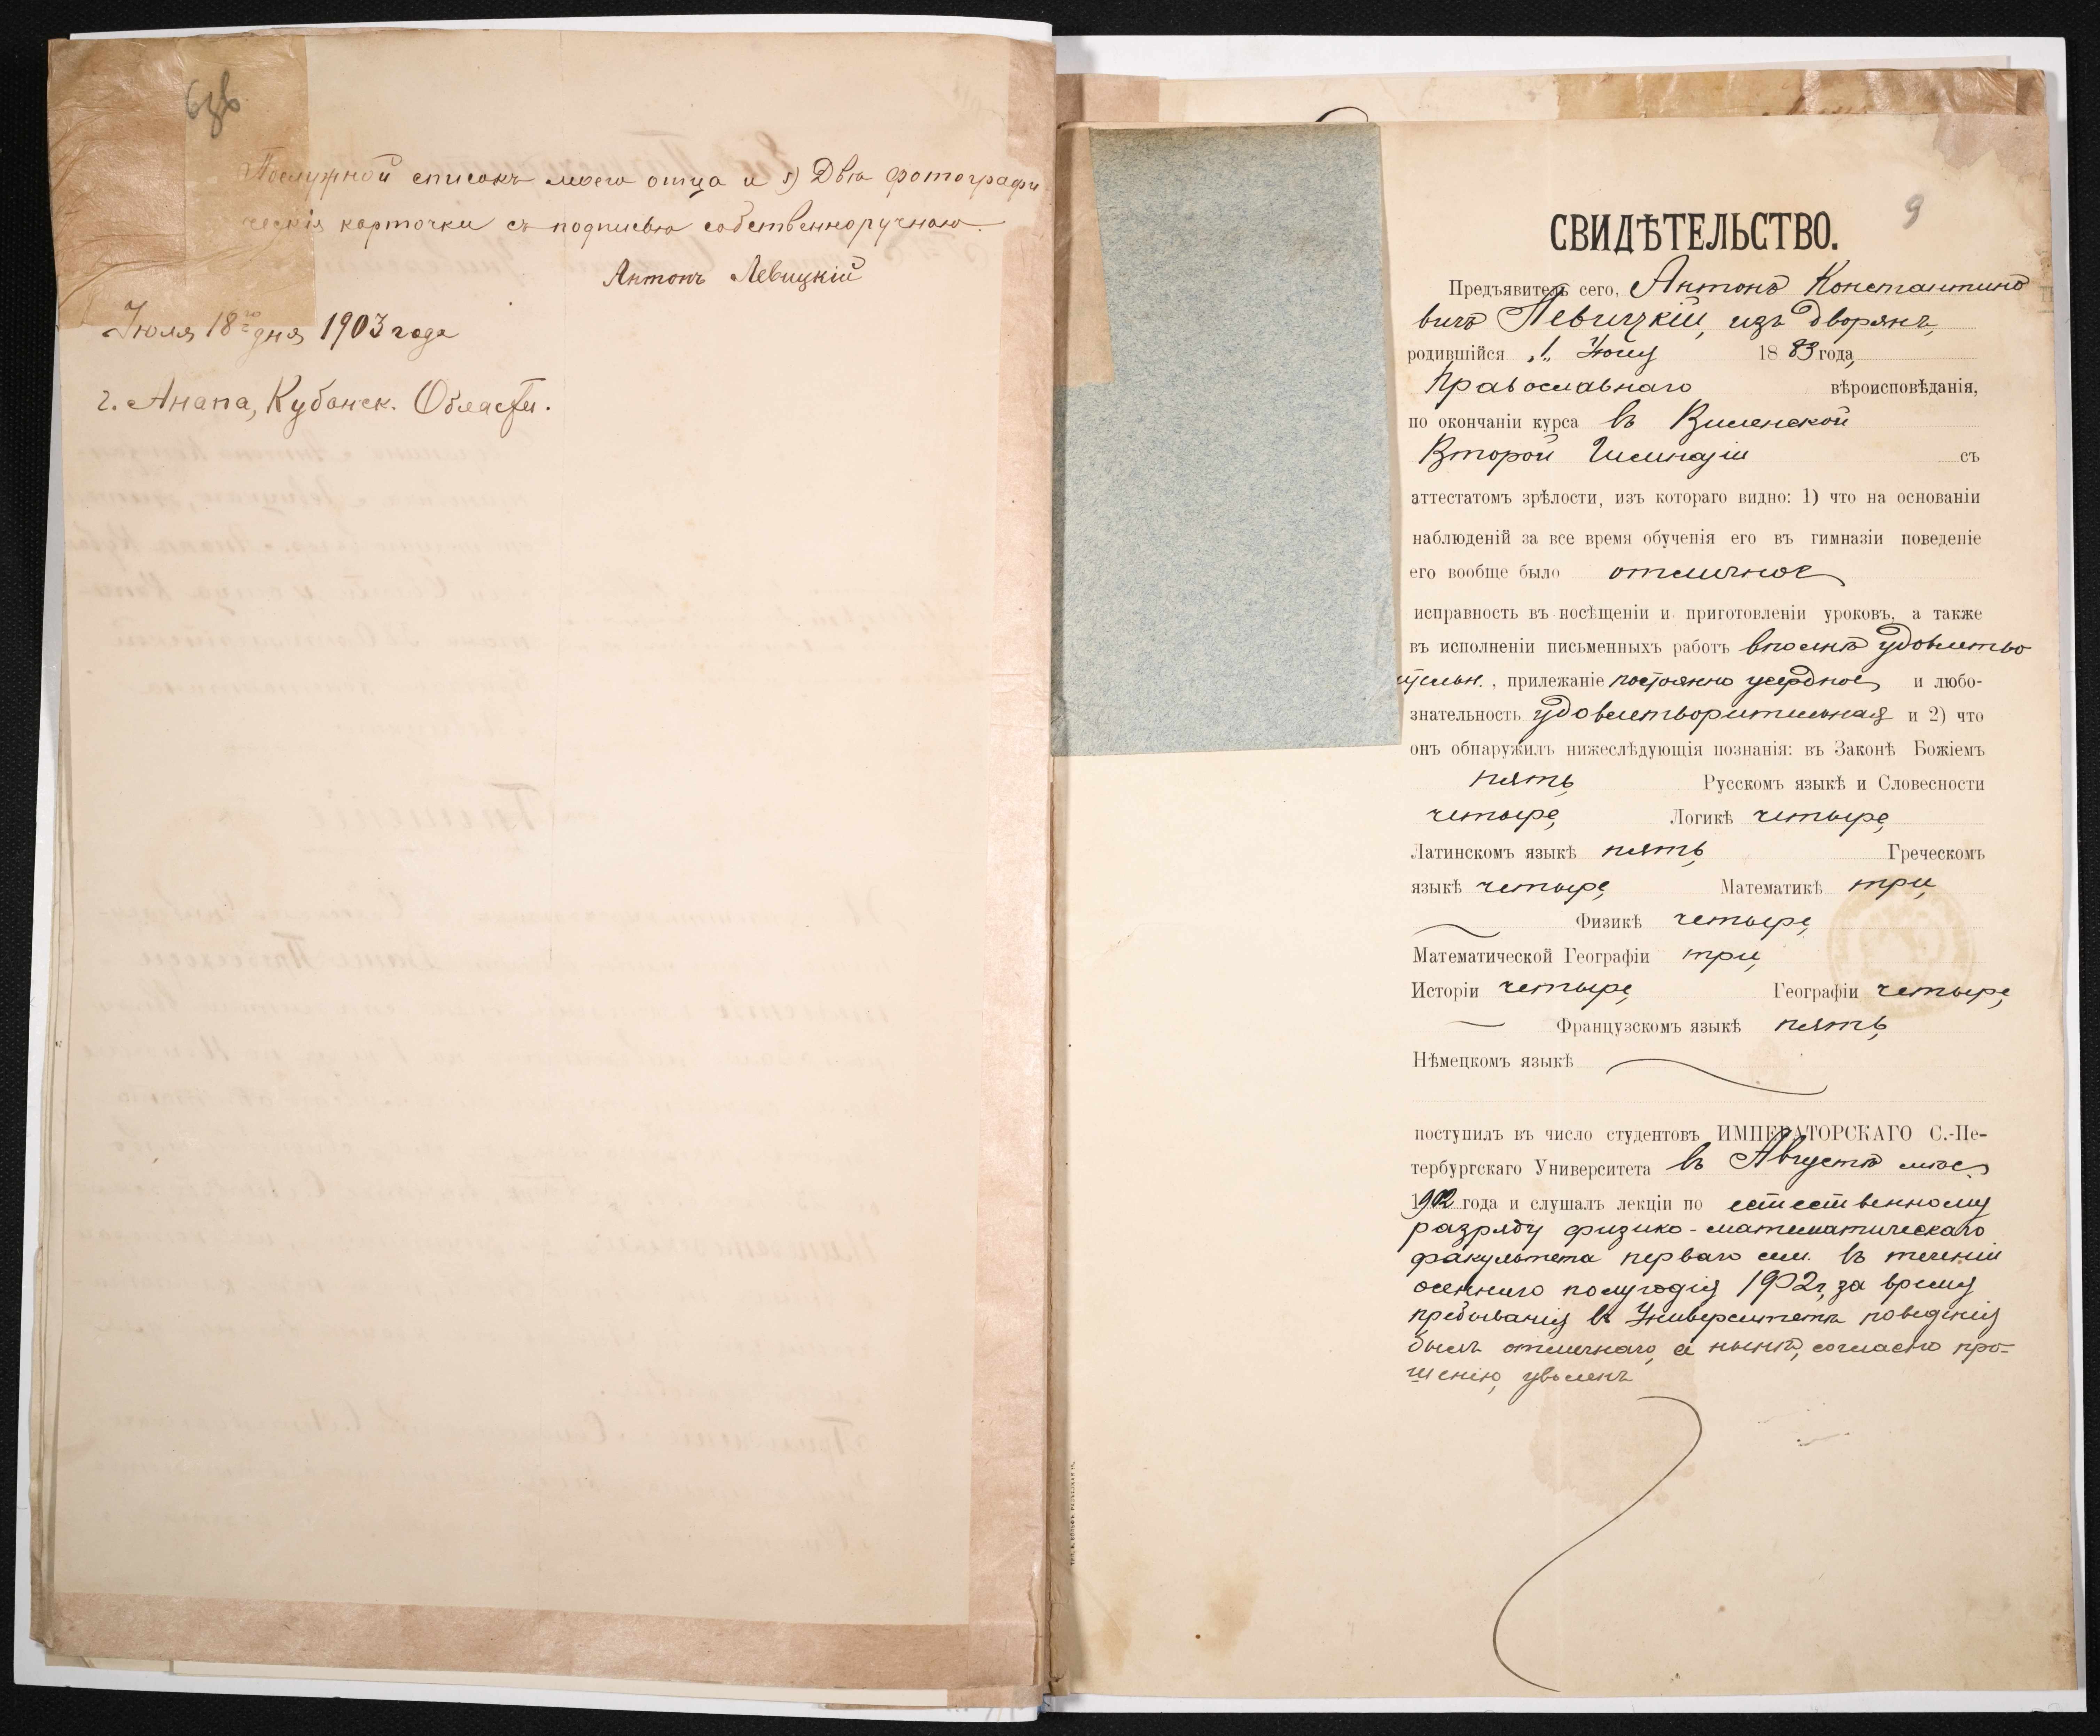 Послужной списокъ моего отца и 5) Двѣ фотографи
ческія карточки съ подписью собственноручною.
Антонъ Левицкій
Іюля 18го дня 1903 года
г. Анапа, Кубанск. Области.
9
СВИДѢТЕЛЬСТВО.
Предъявитель сего, Антонъ Константино
вичъ Левицкій, изъ дворянъ,
родившійся „1„ Іюля 1883 года,
Православнаго вѣроисповѣданія,
по окончаніи курса въ Виленской
Второй Гимназіи съ
аттестатомъ зрѣлости, изъ котораго видно: 1) что на основаніи
наблюденій за все время обученія его въ гимназіи поведеніе
его вообще было отличное
исправность въ посѣщеніи и приготовленіи уроковъ, а также
въ исполненіи письменныхъ работъ вполнѣ удовлетво
рительн., прилежаніе постоянно усердное и любо-
знательность удовлетворительная и 2) что
онъ обнаружилъ нижеслѣдующія познанія: въ Законѣ Божіемъ
пять, Русскомъ языкѣ и Словесности
четыре, Логикѣ четыре,
Латинскомъ языкѣ пять, Греческомъ
языкѣ четыре, Математикѣ три,
Физикѣ четыре,
Математической Географіи три,
Исторіи четыре, Географіи четыре,
Французскомъ языкѣ пять,
Нѣмецкомъ языкѣ
поступилъ въ число студентовъ ИМПЕРАТОРСКАГО С.-Пе-
тербургскаго Университета въ Августѣ мѣс.
1902 года и слушалъ лекціи по естественному
разряду физико-математическаго
факультета перваго сем. въ теченіи
осенняго полугодія 1902 г., за время
пребыванія въ Университетѣ поведенія
былъ отличнаго, а нынѣ, согласно про-
шенію, уволенъ